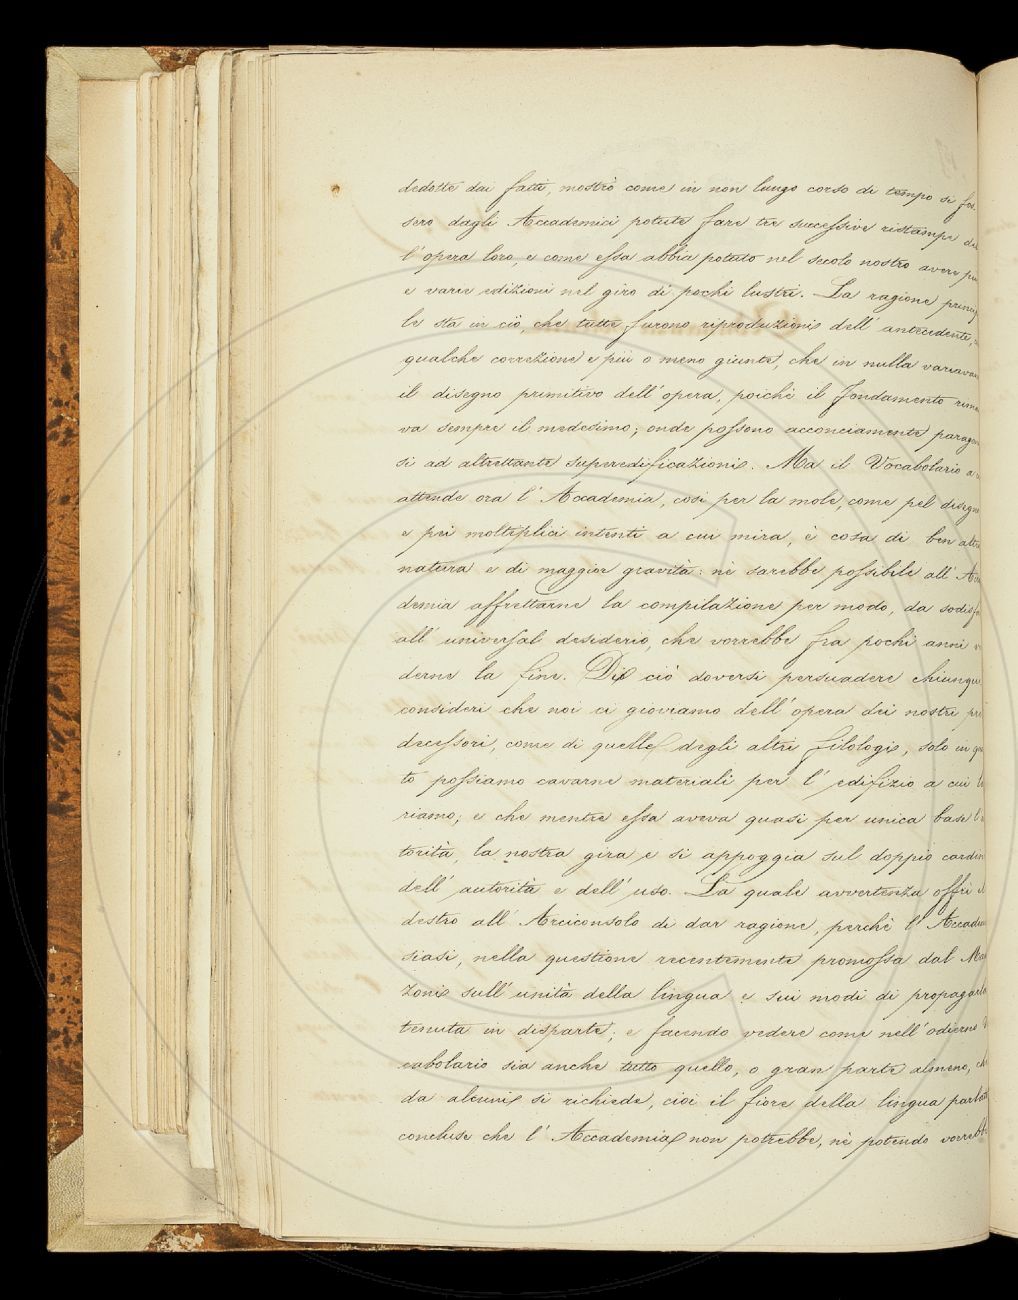 dedotte dai fatti, mostrò come in non lungo corso di tempo si fos-
sero dagli Accademici potute fare tre successive ristampe del
l'opera loro, e come essa abbia potuto nel secolo nostro avere pu
e varie edizioni nel giro di pochi lustri. La ragione princip
le sta in ciò, che tutte furono riproduzioni dell'antecedente,
qualche correzione e più o meno giunte, che in nulla variavan
il disegno primitivo dell'opera, poichè il fondamento rima
va sempre il medesimo; onde possono acconciamente paragon
si ad altrettante superedificazioni. Ma il Vocabolario a
attende ora l'Accademia, così per la mole, come pel disegno
e pei molteplici intenti a cui mira, è cosa di ben altra
natura e di maggior gravità: nè sarebbe possibile all'Acca
demia affrettarne la compilazione per modo, da sodisfa
all'universal desiderio, che vorrebbe fra pochi anni ve
derne la fine. Di ciò doversi persuadere chiunque
consideri che noi ci gioviamo dell'opera dei nostri pre
decessori, come di quelle degli altri filologi, solo in quan
to possiamo cavarne materiali per l'edifizio a cui la
riamo; e che mentre essa aveva quasi per unica base l'au
torità, la nostra gira e si appoggia sul doppio cardin
dell'autorità e dell'uso. La quale avvertenza offrì il
destro all'Arciconsolo di dar ragione, perchè l'Accadem
siasi, nella questione recentemente promossa dal Man
zoni sull'unità della lingua e sui modi di propagarla
tenuta in disparte; e facendo vedere come nell'odierno V
cabolario sia anche tutto quello, o gran parte almeno, ch
da alcuni si richiede, cioè il fiore della lingua parlata
concluse che l'Accademia non potrebbe, nè potendo vorrebb